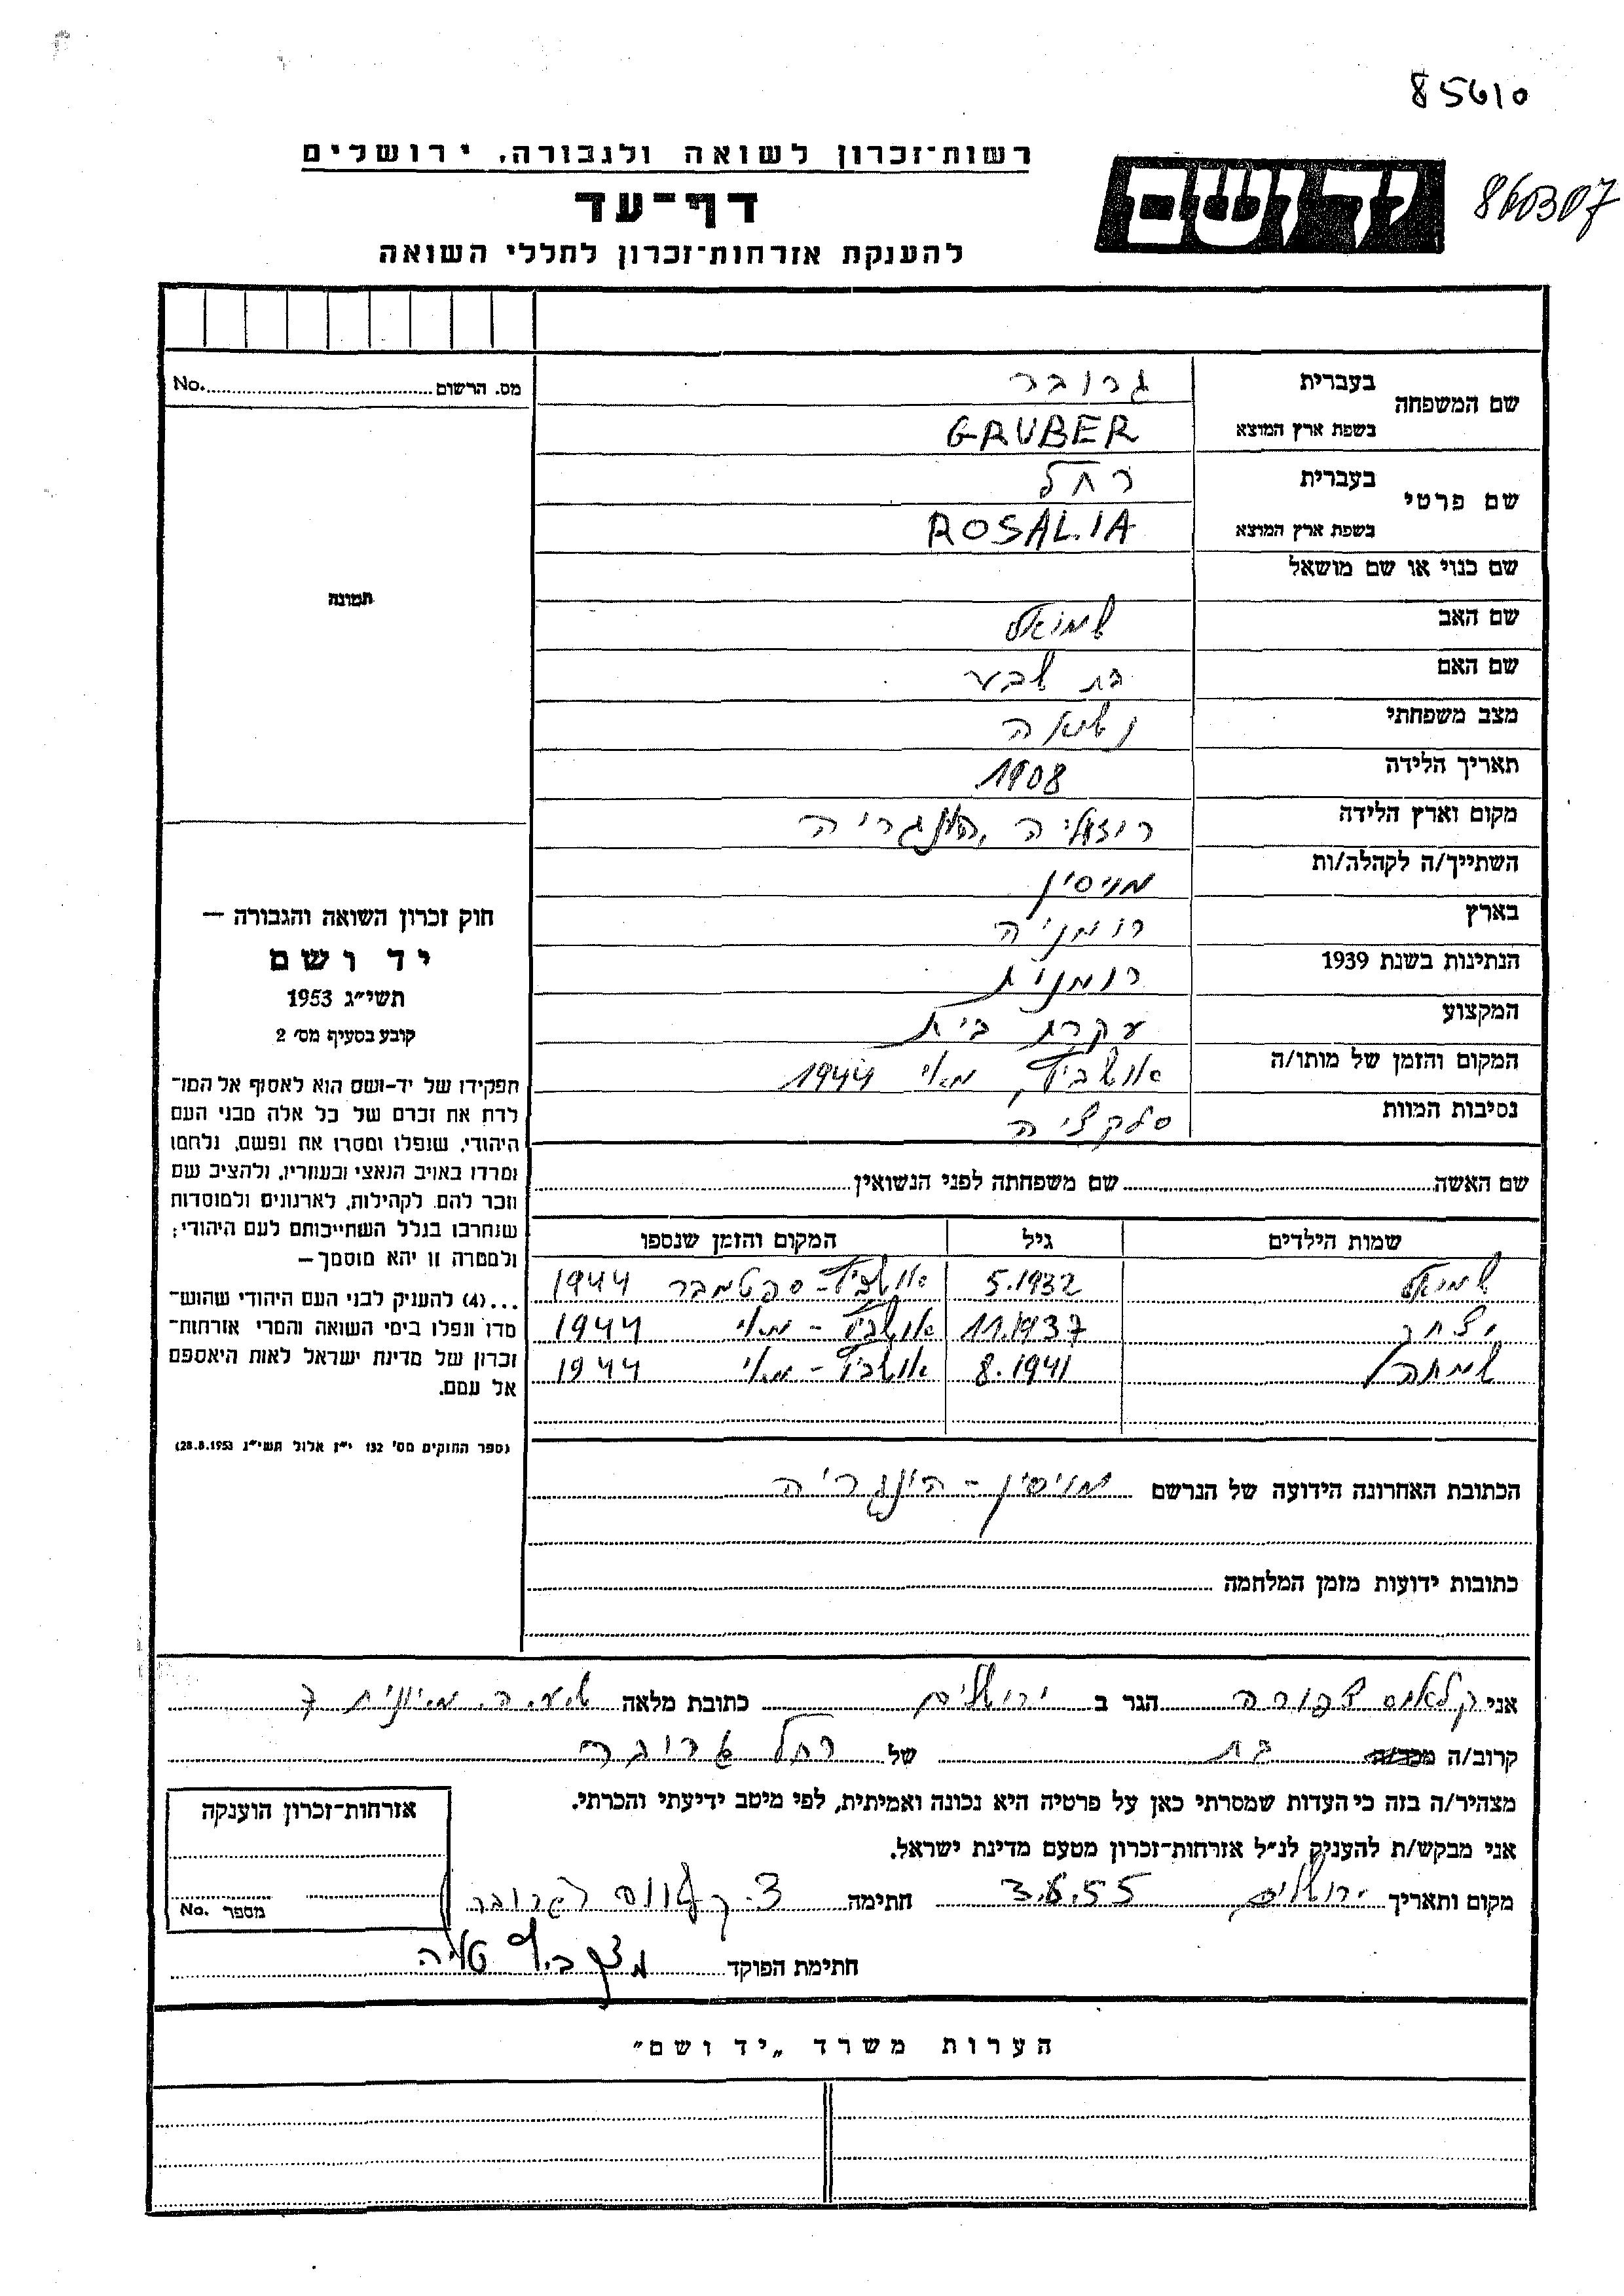 85610
860307
יד ושם
רשות־זכרון לשואה ולגבורה, ירושלים
דף־עד
להענקת אזרחות־זכרון לחללי השואה
מס. הרשום No.
תמונה
שם המשפחה
בעברית גרובר
בשפת ארץ המוצא GRUBER
שם פרטי
בעברית רחל
בשפת ארץ המוצא ROSALIA
שם כנוי או שם מושאל
שם האב שמואל
שם האם בת שבע
מצב משפחתי נשואה
תאריך הלידה 1908
מקום וארץ הלידה רוזאליה, הונגריה
השתייך/ה לקהלה/ות מויסין
בארץ רומניה
הנתינות בשנת 1939 רומנית
המקצוע עקרת בית
המקום והזמן של מותו/ה אושביץ מאי 1944
נסיבות המוות סלקציה
חוק זכרון השואה והגבורה —
יד ושם
תשי״ג 1953
קובע בסעיף מס׳ 2
תפקידו של יד-ושם הוא לאסוף אל המו־
לדת את זכרם של כל אלה מבני העם
היהודי, שנפלו ומסרו את נפשם, נלחמו
ומרדו באויב הנאצי ובעוזריו, ולהציב שם
וזכר להם, לקהילות, לארגונים ולמוסדות
שנחרבו בגלל השתייכותם לעם היהודי;
ולמטרה זו יהא מוסמך—
...(4) להעניק לבני העם היהודי שהוש־
מדו ונפלו בימי השואה והמרי אזרחות־
זכרון של מדינת ישראל לאות היאספם
אל עמם.
(ספר החוקים מס׳ 132 י״ז אלול תשי״ג 28.8.1953)
שם האשה שם משפחתה לפני הנשואין
שמות הילדים גיל המקום והזמן שנספו
שמואל 5.1932 אושביץ - ספטמבר 1944
יצחק 11.1937 אושביץ - מאי 1944
שמחה 8.1941 אושביץ - מאי 1944
הכתובת האחרונה הידועה של הנרשם מויסין - הונגריה
כתובות ידועות מזמן המלחמה
אני קלאוס צפורה הגר ב ירושלים כתובת מלאה מיונית 7
קרוב/ה בת של רחל גרובר
מצהיר/ה בזה כי העדות שמסרתי כאן על פרטיה היא נכונה ואמיתית, לפי מיטב ידיעתי והכרתי.
אני מבקש/ת להעניק לנ״ל אזרחות־זכרון מטעם מדינת ישראל.
מקום ותאריך ירושלים 3.6.55 חתימה צ. קלאוס גרובר
חתימת הפוקד
אזרחות־זכרון הוענקה
מספר No.
הערות משרד „יד ושם״